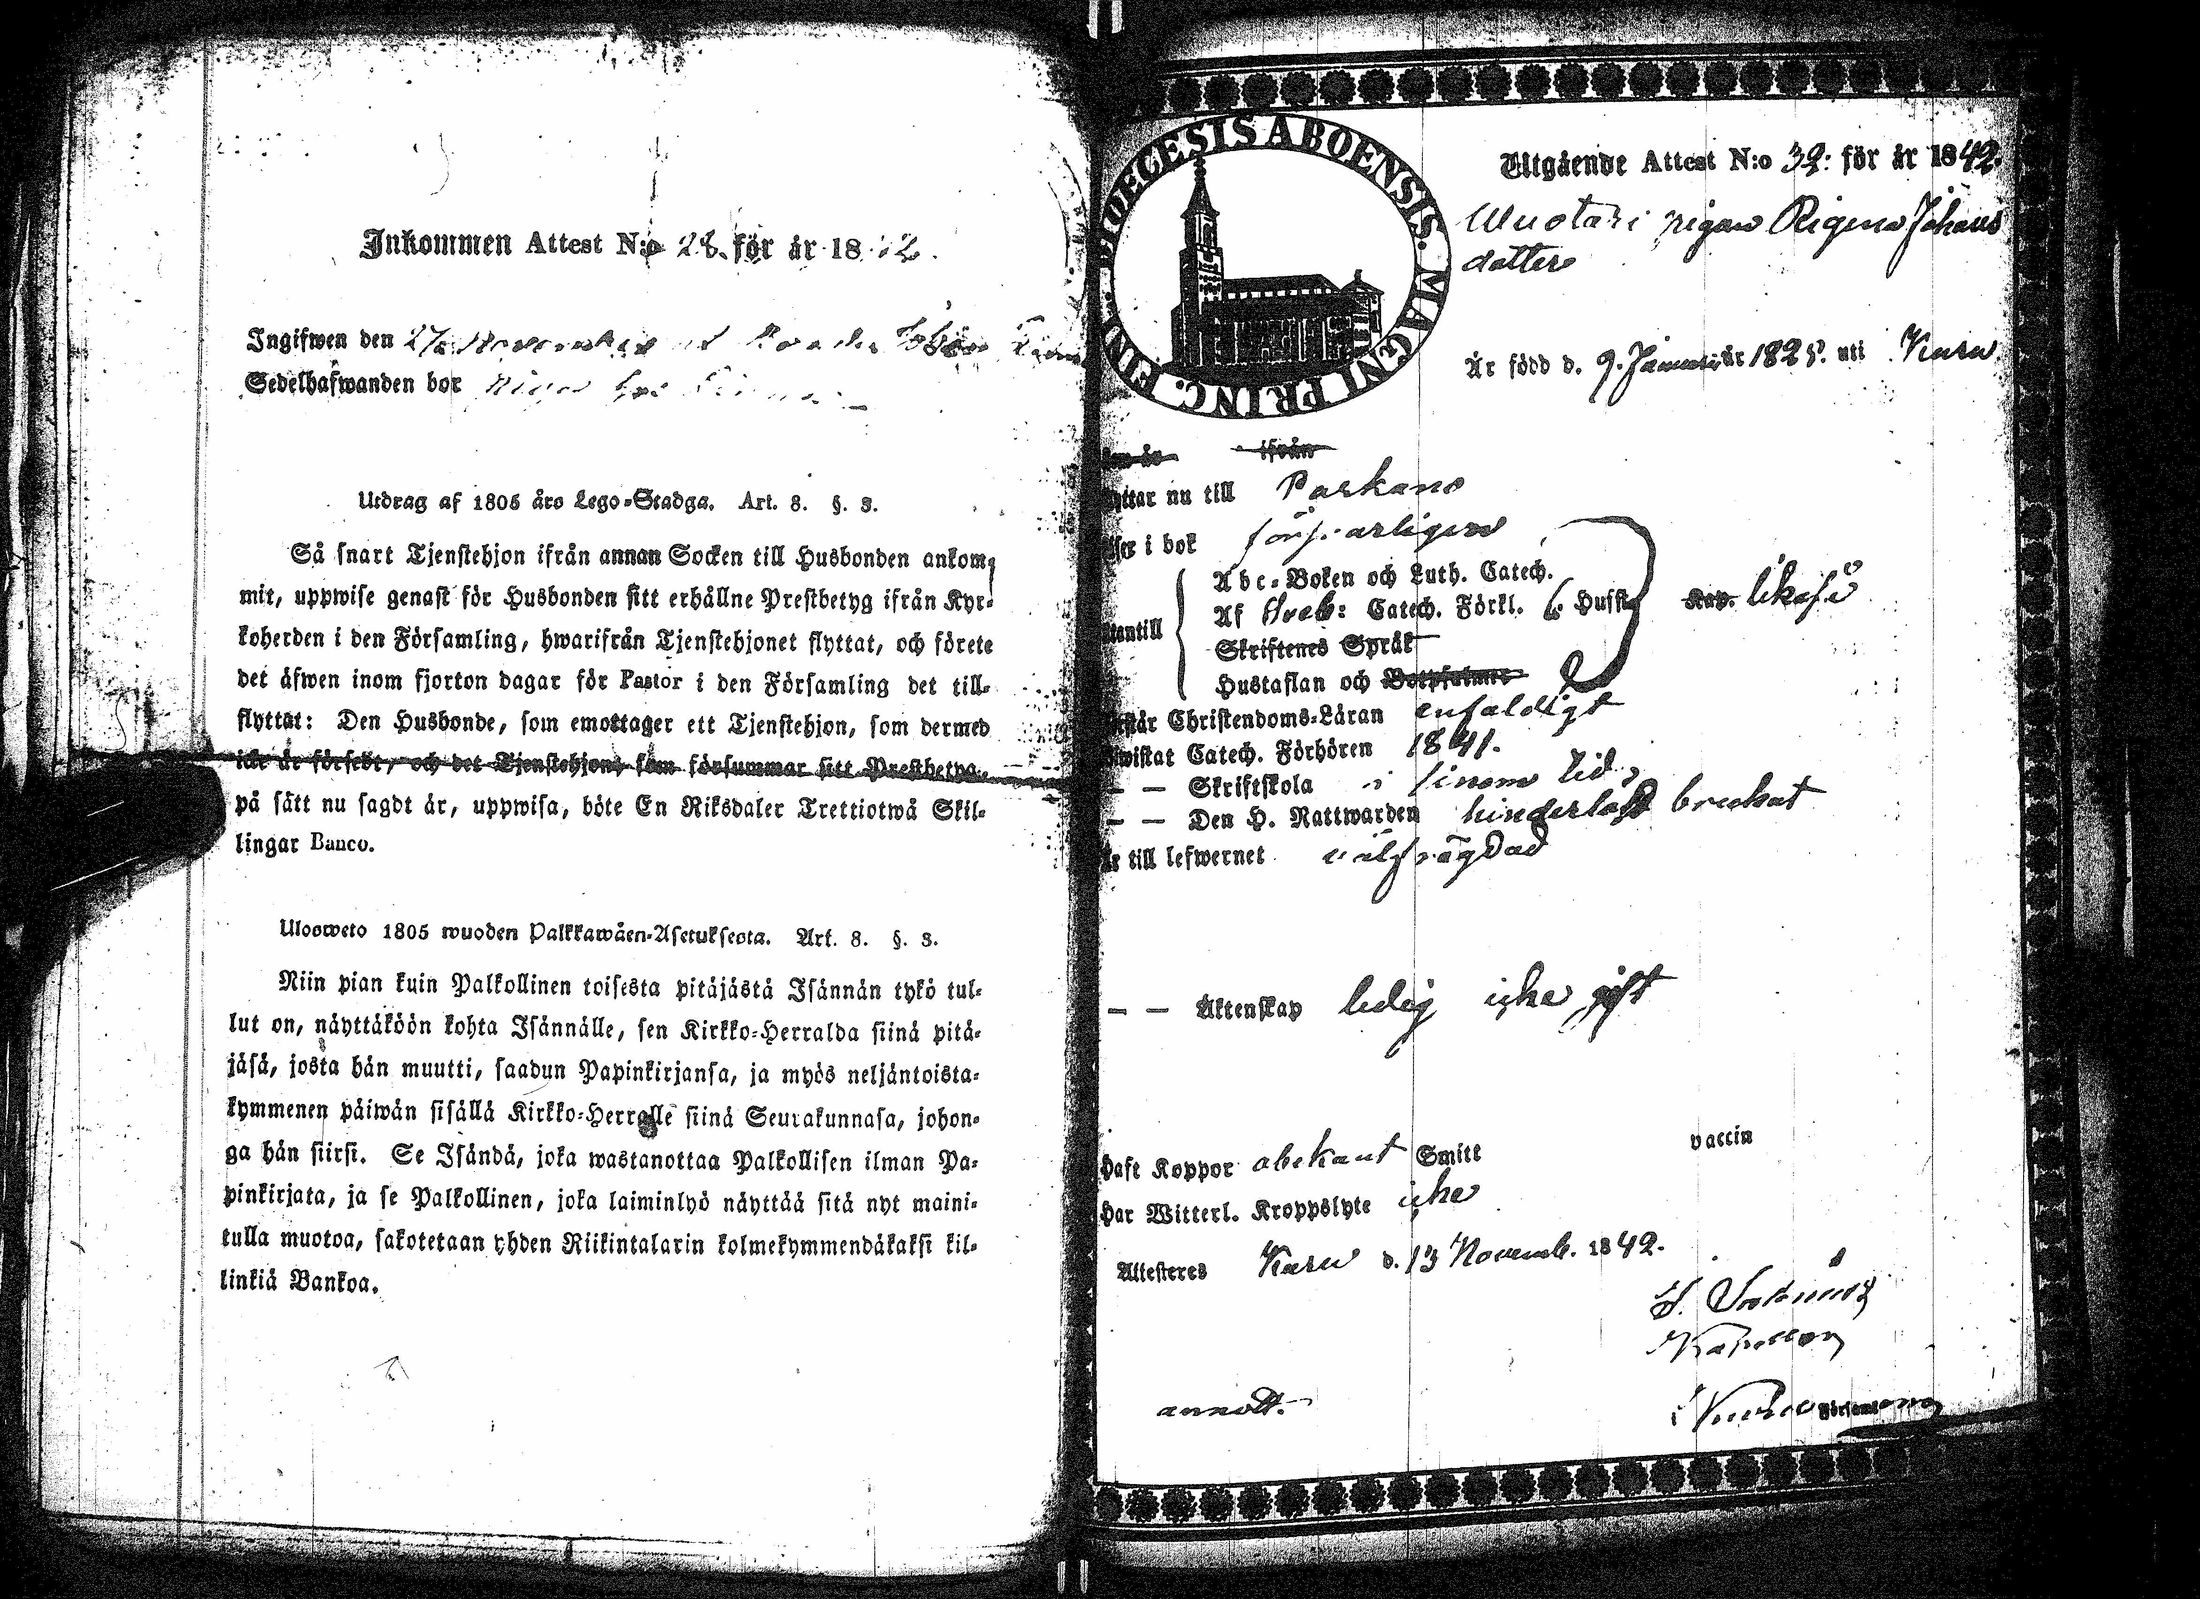 Inkommen Attest N:o 28. för år 1842.
Ingifwen den 27 November
Sedelhafwanden bor
Utdrag af 1805 års Lego-Stadga. Art. 8. §. 3.
Så snart Tjenstehjon ifrån annan Socken till Husbonden ankom-
mit, uppwise genast för Husbonden sitt erhållne Prestbetyg ifrån Kyr-
koherden i den Församling, hwarifrån Tjenstehjonet flyttat, och förete
det äfwen inom fjorton dagar för Pastor i den Församling det till-
flyttat: Den Husbonde, som emottager ett Tjenstehjon, som dermed
icke är försedt, och det Tjenstehjon, som försummar sitt Prestbetyg,
på sätt nu sagdt är, uppwisa, böte En Riksdaler Trettiotwå Skil-
lingar Banco.
Ulosweto 1805 wuoden Palkkawäen-Asetuksesta. Art. 8. §. 3.
Niin pian kuin Palkollinen toisesta pitäjästä Isännän tykö tul-
lut on, näyttäköön kohta Isännälle, sen Kirkko-Herralda siinä pitä-
jäsä, josta hän muutti, saadun Papinkirjansa, ja myös neljäntoista-
kymmenen päiwän sisällä Kirkko-Herralle siinä Seurakunnasa, johon-
ga hän siirsi. Se Isändä, joka wastanottaa Palkollisen ilman Pa-
pinkirjata, ja se Palkollinen, joka laiminlyö näyttää sitä nyt maini-
tulla muotoa, sakotetaan yhden Riikintalarin kolmekymmendäkaksi kil-
linkiä Bankoa.
DIOECESIS ABOENSIS. MAGNI PRINC. FINL.
Utgående Attest N:o 32: för år 1842.
pigan Regina Johans
dotter
Är född d. 9. Januari år 1825. uti Kuru
ifrån
flyttar nu till Parkano
läser i bok försvarligen
Abc-Boken och Luth. Catech.
Af Sveb: Catech. Förkl. Husst. Kap. likaså
utantill
Skriftenes Språk
Hustaflan och Botpsalmer
förstår Christendoms-Läran enfaldigt
biwistat Catech. Förhören 1841.
— — Skriftskola i sinom tid
— — Den H. Nattwarden hinderlöst brukat
Är till lefwernet välfrägdad
— — Äktenskap ledig icke gift
Haft Koppor obekant Smitt vaccin
Har Witterl. Kroppslyte icke
Attesteres Kuru d. 13 Novemb. 1842.
Kapellan
i Kuru Församling
annott.